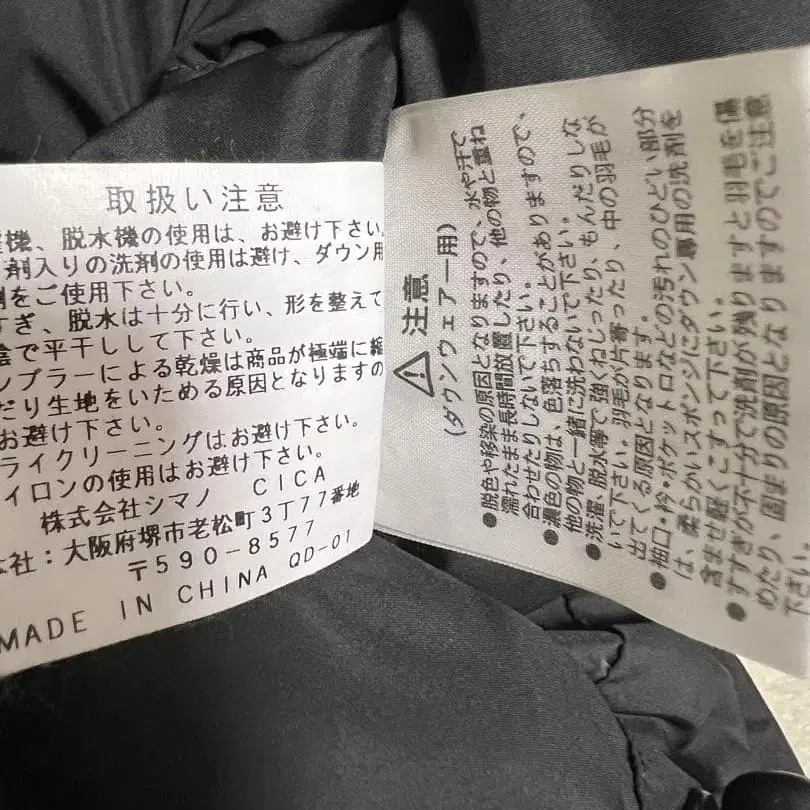 取扱い注意
機、脱水機の使用は、お避け下さい。
剤入りの洗剤の使用は避け、ダウン用
剤をご使用下さい。
すぎ、脱水は十分に行い、形を整えて
陰で平干しして下さい。
ンブラーによる乾燥は商品が極端に縮
だり生地をいためる原因となりますの
お避け下さい。
ライクリーニングはお避け下さい。
イロンの使用はお避け下さい。
株式会社シマノ CICA
本社：大阪府堺市老松町3丁77番地
〒590-8577
MADE IN CHINA QD-01
注意
(ダウンウェアー用)
●脱色や移染の原因となりますので、水や汗で
濡れたまま長時間放置したり、他の物と重ね
合わせたりしないで下さい。
●濃色の物は、色落ちすることがありますので、
他の物と一緒に洗わないで下さい。
●洗濯、脱水等で強くねじったり、もんだりしな
いで下さい。羽毛が片寄ったり、中の羽毛が
出てくる原因となります。
●袖口・衿・ポケット口などの汚れのひどい部分
は、柔らかいスポンジにダウン専用の洗剤を
含ませ軽くこすって下さい。
●すすぎが不十分で洗剤が残りますと羽毛を傷
めたり、固まりの原因となりますのでご注意
下さい。